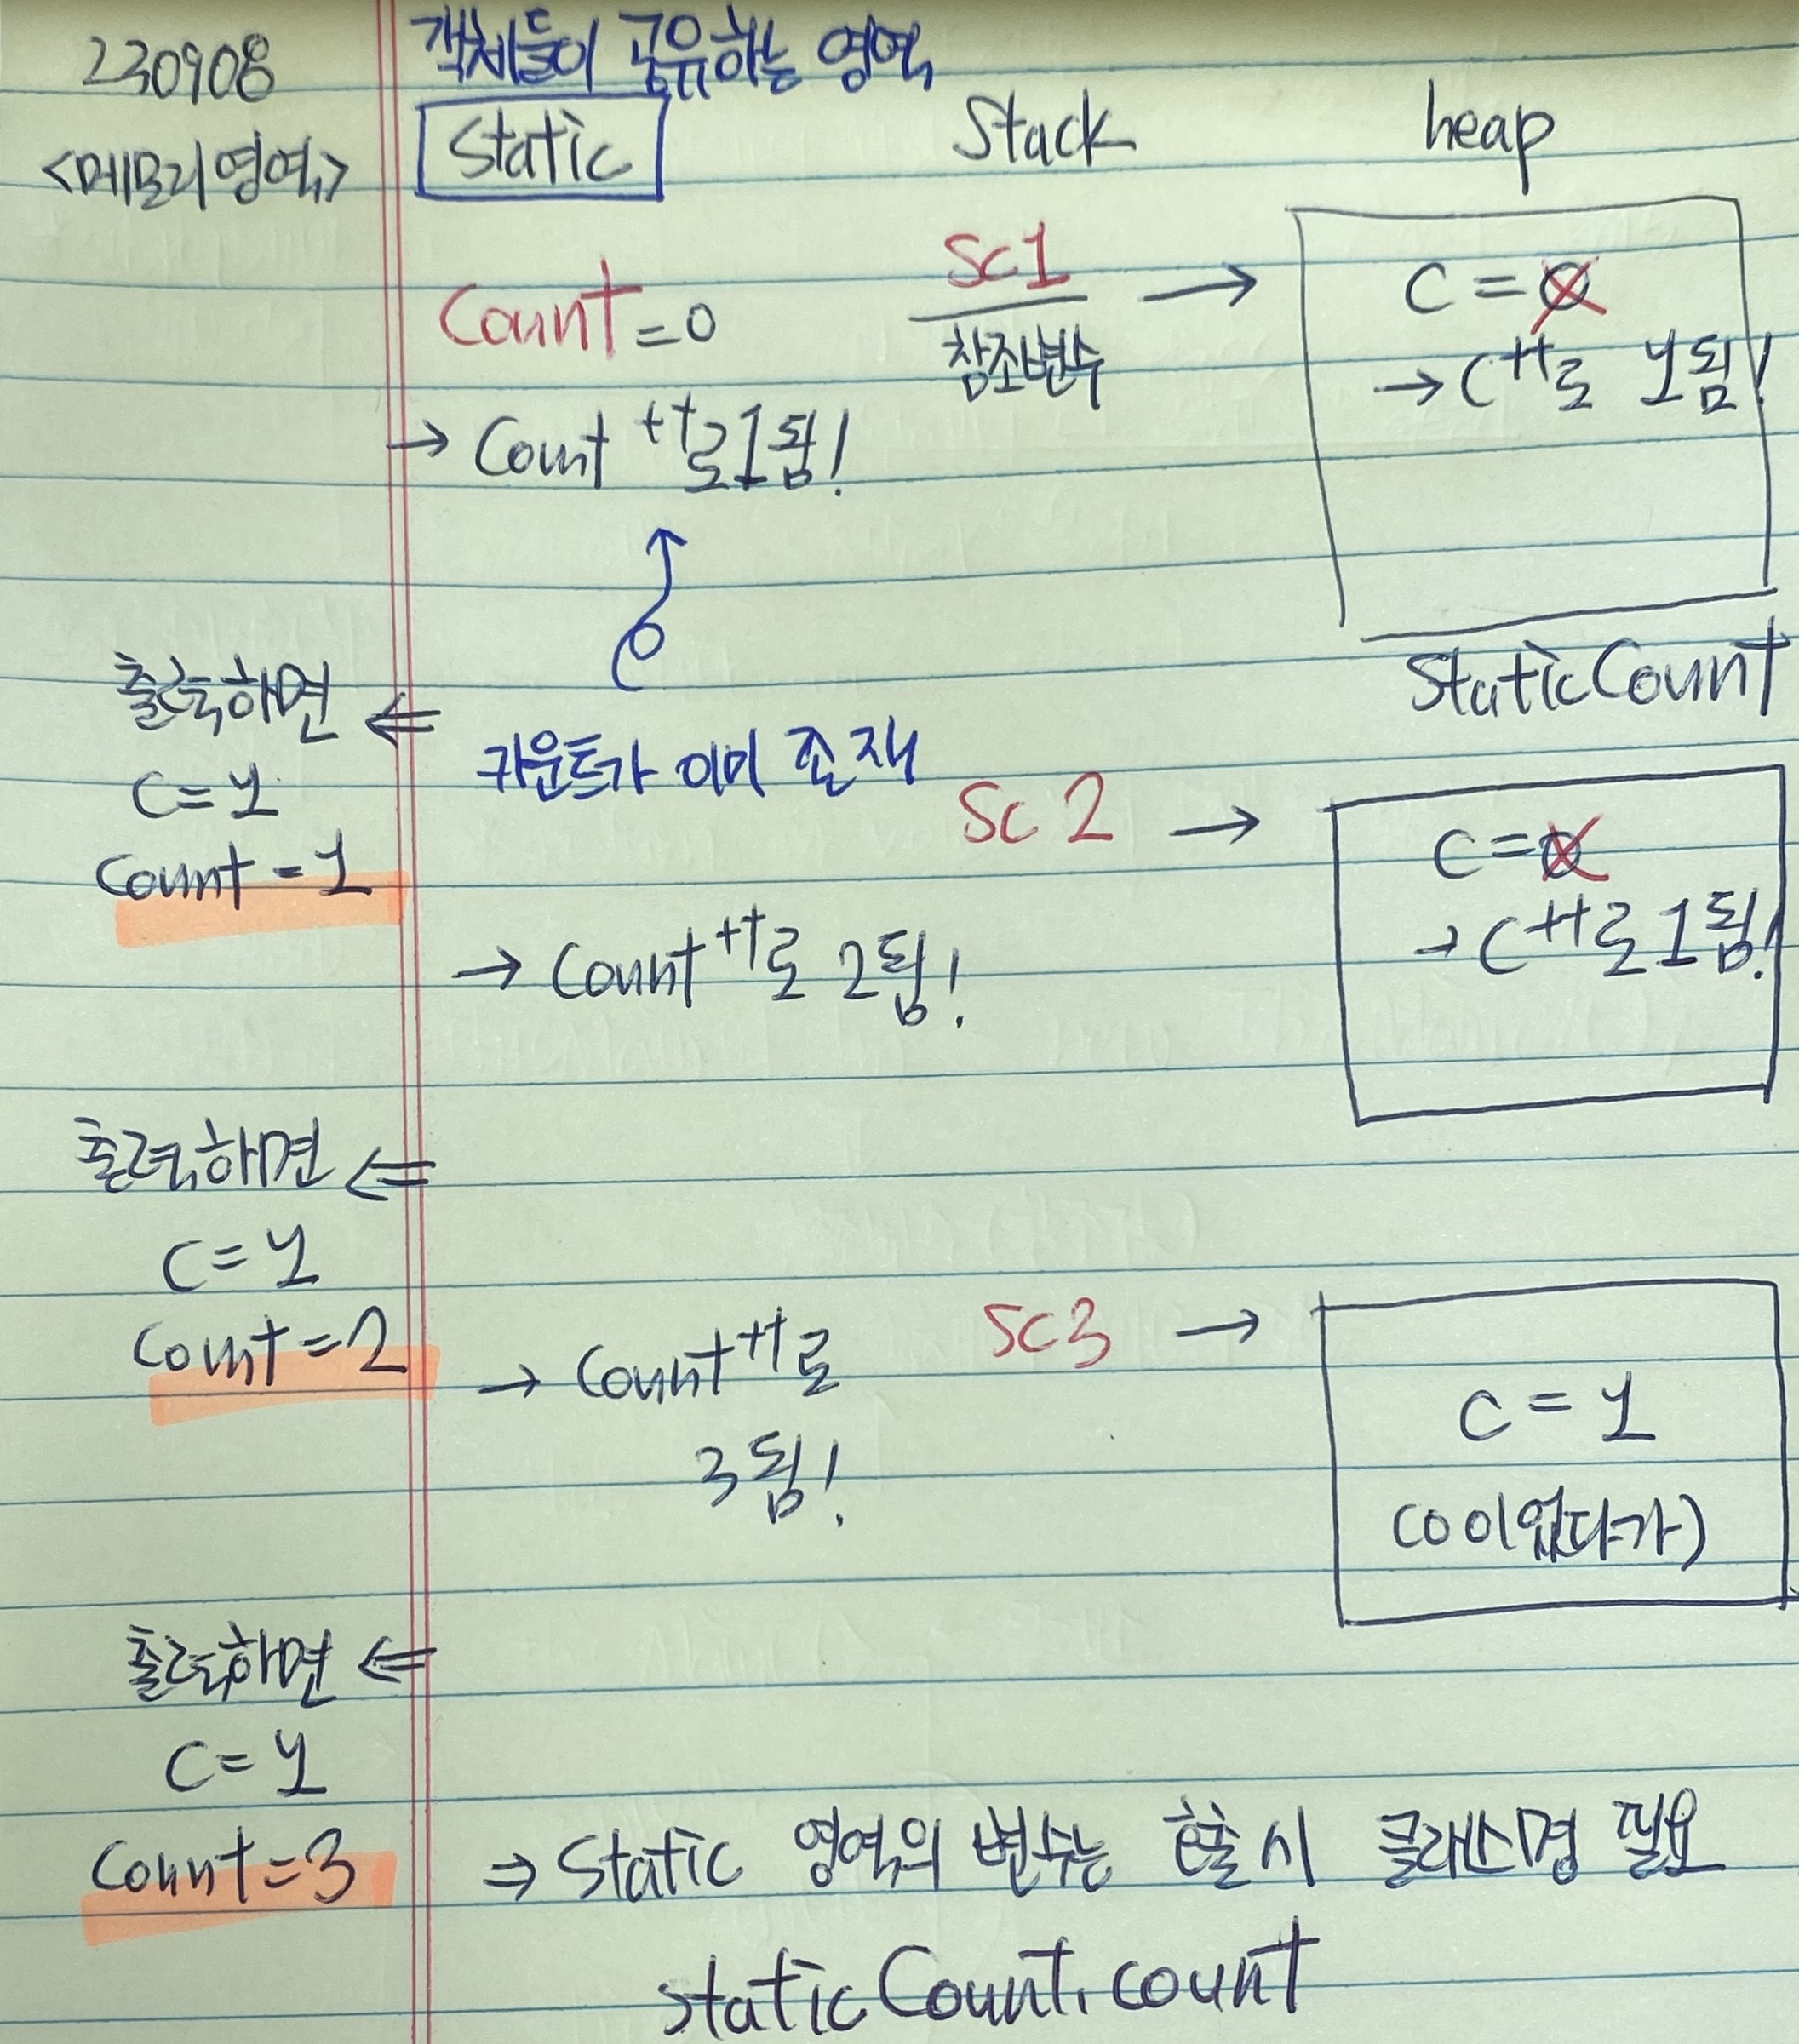 230908
객체들이 공유하는 영역
<메모리영역>
static
Stack
heap
Count=0
SC1
참조변수
→
C=0
→ C++로 1됨!
→ Count ++로 1됨!
StaticCount
출력하면 ⇐
C=1
Count=1
카운트가 이미 존재
SC2 →
C=0
→ C++로 1됨!
→ Count++로 2됨!
출력하면 ⇐
C=1
Count=2
→ Count++로
3됨!
SC3 →
C=1
(0이었다가)
출력하면 ⇐
C=1
Count=3
⇒ Static 영역의 변수는 호출 시 클래스명 필요
staticCount.count